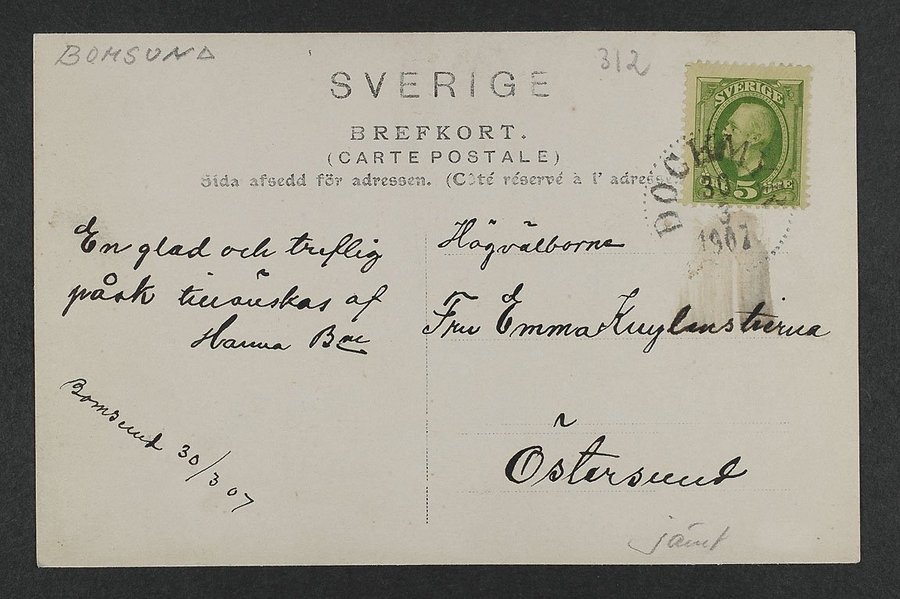 BOMSUND
312
SVERIGE
BREFKORT.
(CARTE POSTALE)
Sida afsedd för adressen. (Côté réservé à l' adresse
SVERIGE
5 ÖRE
30
3
1907
En glad och treflig
påsk tillönskas af
Hanna Bne
Bomsund 30/3 07
Högvälborna
Fru Emma Kuylenstierna
Östersund
jämt